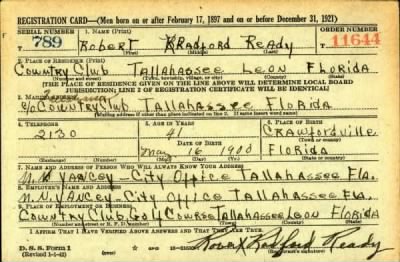 REGISTRATION CARD—(Men born on or after February 17, 1897 and on or before December 31, 1921)
SERIAL NUMBER 1. NAME (Print) ORDER NUMBER
T 789 Robert Bradford Ready 11644
(First) (Middle) (Last)
2. PLACE OF RESIDENCE (Print)
Country Club Tallahassee Leon Florida
(Number and street) (Town, township, village, or city) (County) (State)
[THE PLACE OF RESIDENCE GIVEN ON THE LINE ABOVE WILL DETERMINE LOCAL BOARD
JURISDICTION; LINE 2 OF REGISTRATION CERTIFICATE WILL BE IDENTICAL]
3. MAILING ADDRESS
c/o Country Club Tallahassee Florida
[Mailing address if other than place indicated on line 2. If same insert word same]
4. TELEPHONE 5. AGE IN YEARS 6. PLACE OF BIRTH
2130 41 Crawfordville
DATE OF BIRTH (Town or county)
May 16 1900 Florida
(Exchange) (Number) (Mo.) (Day) (Yr.) (State or country)
7. NAME AND ADDRESS OF PERSON WHO WILL ALWAYS KNOW YOUR ADDRESS
M.N. Yancey - City Office Tallahassee Fla.
8. EMPLOYER'S NAME AND ADDRESS
M.N. Yancey - City Office Tallahassee Fla.
9. PLACE OF EMPLOYMENT OR BUSINESS
Country Club Golf Course Tallahassee Leon Florida
(Number and street or R. F. D. number) (Town) (County) (State)
I AFFIRM THAT I HAVE VERIFIED ABOVE ANSWERS AND THAT THEY ARE TRUE.
D. S. S. Form 1
(Revised 1-1-42) (over) Robert Bradford Ready